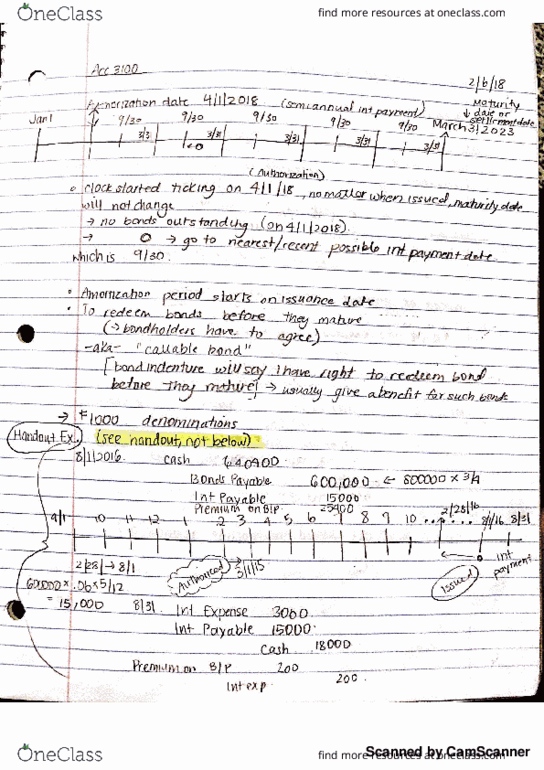 OneClass
find more resources at oneclass.com
Acc 3100
2/6/18
date 4/1/2018 (semiannual int payment)
Maturity
date or
Jan 1
9/30 9/30 9/30 9/30 9/30
March 31 2023
3/31 3/31 3/31 3/31 3/31
(Authorization)
clock started ticking on 4/1/18, no matter when issued, maturity date
will not change
→ no bonds outstanding (on 4/1/2018).
→ O → go to nearest/recent possible int payment date
which is 9/30.
• Amortization period starts on issuance date
• To redeem bonds before they mature
(→ bondholders have to agree)
-aka- "callable bond"
[bond indenture will say I have right to redeem bond
before they mature] → usually give a benefit for such bonds
→ $1000 denominations
Handout Ex. (see handout, not below)
8/1/2016 cash 640900
Bonds Payable 600,000 ← 800000 × 3/4
Int Payable 15000
Premium on B/P 25900
9/1 10 11 12 1 2 3 4 5 6 7 8 9 10 2/28/16 8/1/16 8/31
2/28 → 8/1
Authorized 3/1/15
Issued
int
payment
600000 × .06 × 5/12
= 15,000 8/31 Int Expense 3000
Int Payable 15000
Cash 18000
Premium on B/P 200
Int exp 200
OneClass
find more resources at oneclass.com
Scanned by CamScanner